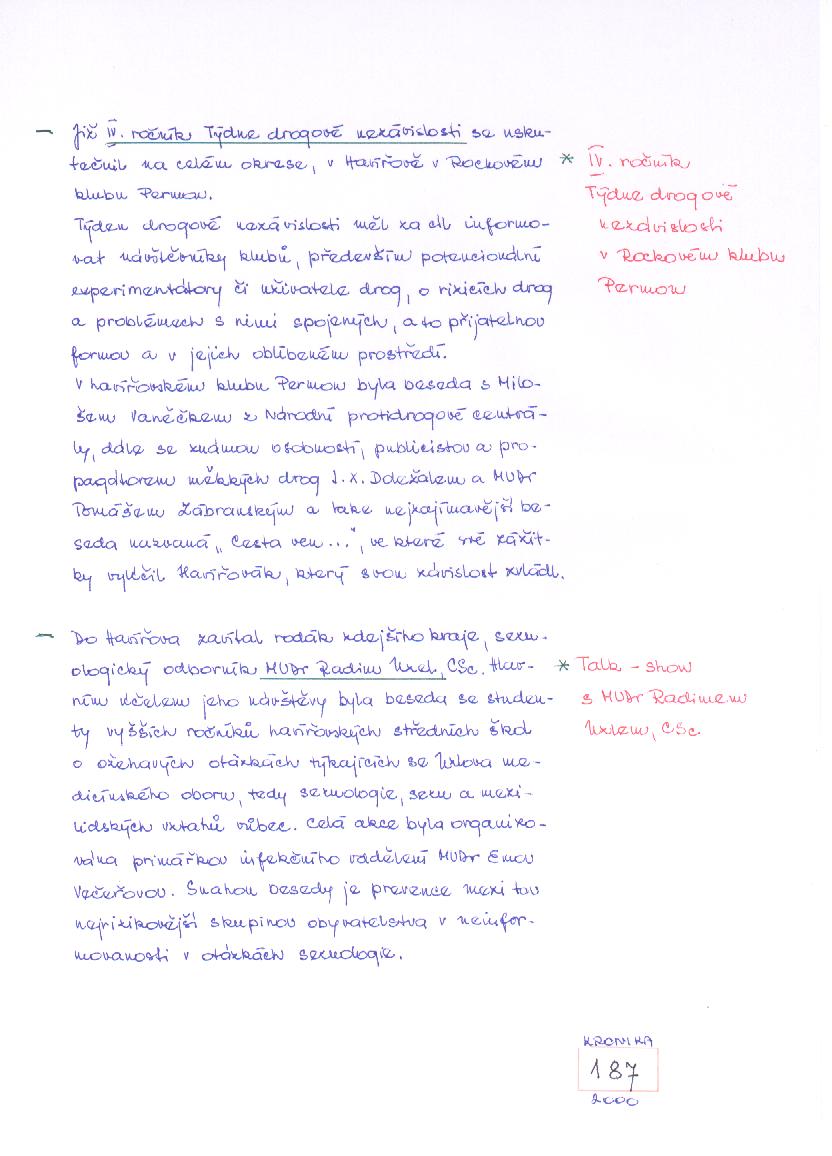 – Již IV. ročník Týdne drogové nezávislosti se usku-
tečnil na celém okrese, v Havířově v Rockovém
klubu Permon.
Týden drogové nezávislosti měl za cíl informo-
vat návštěvníky klubů, především potencionální
experimentátory či uživatele drog, o rizicích drog
a problémech s nimi spojených, a to přijatelnou
formou a v jejich oblíbeném prostředí.
V havířovském klubu Permon byla beseda s Milo-
šem Vaněčkem z Národní protidrogové centrá-
ly, dále se známou osobností, publicistou a pro-
pagátorem měkkých drog J. X. Doležalem a MUDr
Tomášem Zábranským a také nejzajímavější be-
seda nazvaná „Cesta ven...", ve které své zážit-
ky vylíčil Havířovák, který svou závislost zvládl.
* IV. ročník
Týdne drogové
nezávislosti
v Rockovém klubu
Permon
– Do Havířova zavítal rodák zdejšího kraje, sexu-
ologický odborník MUDr Radim Uzel, CSc. Hlav-
ním účelem jeho návštěvy byla beseda se studen-
ty vyšších ročníků havířovských středních škol
o ožehavých otázkách týkajících se Uzlova me-
dicínského oboru, tedy sexuologie, sexu a mezi-
lidských vztahů vůbec. Celá akce byla organizo-
vána primářkou infekčního oddělení MUDr Emou
Večeřovou. Snahou besedy je prevence mezi tou
nejrizikovější skupinou obyvatelstva v neinfor-
movanosti v otázkách sexuologie.
* Talk – show
s MUDr Radimem
Uzlem, CSc.
KRONIKA
187
2000